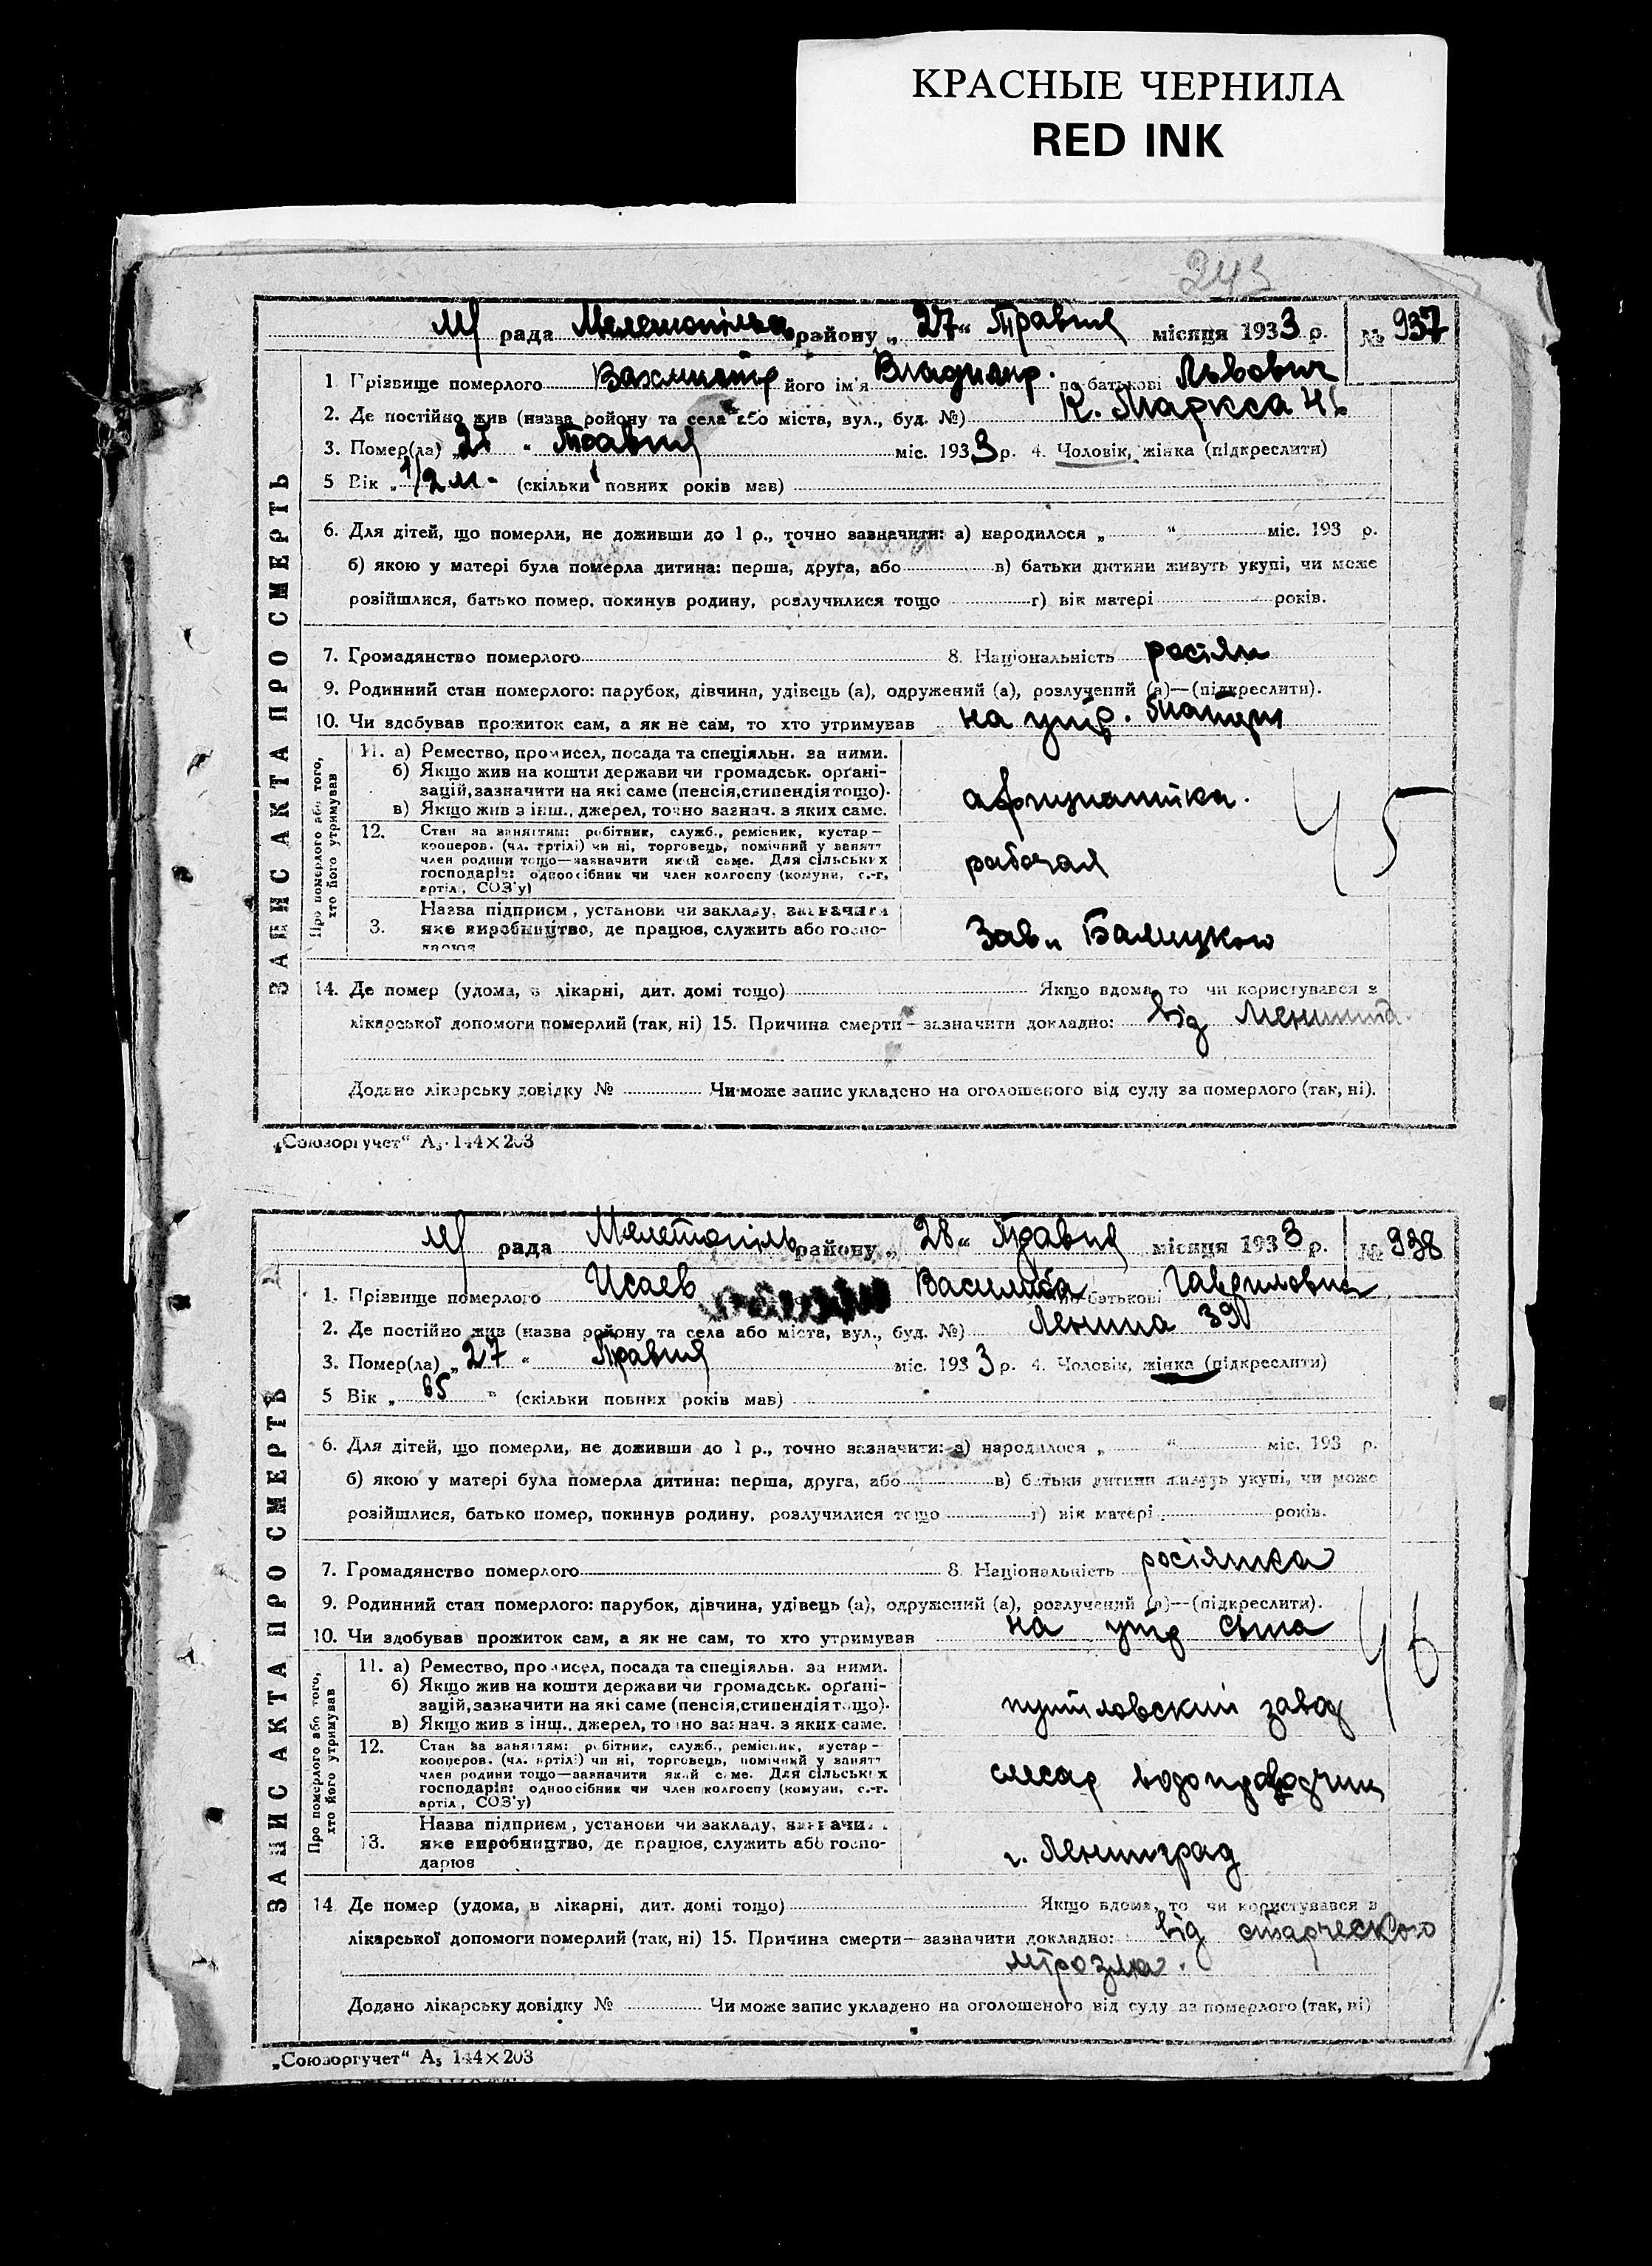 КРАСНЫЕ ЧЕРНИЛА
RED INK
243
М рада Мелетопільськ району „27“ Травня місяця 1933 р. № 937
ЗАПИС АКТА ПРО СМЕРТЬ
1. Прізвище померлого Вахмистр його ім'я Владимир. по батькові Львович
2. Де постійно жив (назва району та села або міста, вул., буд. №) К. Маркса
3. Помер(ла) „ “ Травня міс. 1933 р. 4. Чоловік, жінка (підкреслити)
5 Вік „1/2 м- (скільки повних років мав)
6. Для дітей, що померли, не доживши до 1 р., точно зазначити: а) народилося „ “ міс. 193 р.
б) якою у матері була померла дитина: перша, друга, або в) батьки дитини живуть укупі, чи може
розійшлися, батько помер, покинув родину, розлучилися тощо г) вік матері років.
7. Громадянство померлого 8. Національність росіян
9. Родинний стан померлого: парубок, дівчина, удівець (а), одружений (а), розлучений (а)—(підкреслити).
10. Чи здобував прожиток сам, а як не сам, то хто утримував на утр. Матери
Про померлого або того, хто його утримував
11. а) Ремество, промисел, посада та спеціяльн. за ними.
б) Якщо жив на кошти держави чи громадськ. орґані-
зацій, зазначити на які саме (пенсія, стипендія тощо).
в) Якщо жив з інш., джерел, точно зазнач. з яких саме.
45
12. Стан за заняттям: робітник, служб., ремісник, кустар—
кооперов. (чл. артілі) чи ні, торговець, помічний у занятт
член родини тощо—зазначити який саме. Для сільських
господарів: одноосібник чи член колгоспу (комуни, с.-г.
артіл., СОЗ'у)
рабочая
3. Назва підприєм., установи чи закладу, зазначити
яке виробництво, де працює, служить або госпо-
дарює
Зав. Балицкого
14. Де помер (удома, в лікарні, дит. домі тощо) Якщо вдома, то чи користувався з
лікарської допомоги померлий (так, ні) 15. Причина смерти—зазначити докладно: від Менингіта.
Додано лікарську довідку № Чи може запис укладено на оголошеного від суду за померлого (так, ні).
„Союзоргучет“ А5 144×203
М рада Мелетопіль району „28“ Травня місяця 1933 р. № 938
ЗАПИС АКТА ПРО СМЕРТЬ
1. Прізвище померлого Исаев Василиса по батькові Гавриловна
2. Де постійно жив (назва району та села або міста, вул., буд. №) Ленина 39
3. Помер(ла) „27“ Травня міс. 1933 р. 4. Чоловік, жінка (підкреслити)
5 Вік „65“ (скільки повних років мав)
6. Для дітей, що померли, не доживши до 1 р., точно зазначити: а) народилося „ “ міс. 193 р.
б) якою у матері була померла дитина: перша, друга, або в) батьки дитини живуть укупі, чи може
розійшлися, батько помер, покинув родину, розлучилися тощо г) вік матері років.
7. Громадянство померлого 8. Національність росіянка
9. Родинний стан померлого: парубок, дівчина, удівець (а), одружений (а), розлучений (а)—(підкреслити).
10. Чи здобував прожиток сам, а як не сам, то хто утримував на утр сына
46
Про померлого або того, хто його утримував
11. а) Ремество, промисел, посада та спеціяльн. за ними.
б) Якщо жив на кошти держави чи громадськ. орґані-
зацій, зазначити на які саме (пенсія, стипендія тощо).
в) Якщо жив з інш., джерел, точно зазнач. з яких саме.
путиловский завод
12. Стан за заняттям: робітник, служб., ремісник, кустар—
кооперов. (чл. артілі) чи ні, торговець, помічний у занятт
член родини тощо—зазначити який саме. Для сільських
господарів: одноосібник чи член колгоспу (комуни, с.-г.
артіл., СОЗ'у)
слесар водопроводчик
13. Назва підприєм., установи чи закладу, зазначити
яке виробництво, де працює, служить або госпо-
дарює
г. Ленинград
14 Де помер (удома, в лікарні, дит. домі тощо) Якщо вдома, то чи користувався з
лікарської допомоги померлий (так, ні) 15. Причина смерти—зазначити докладно: від старческого
Додано лікарську довідку № Чи може запис укладено на оголошеного від суду за померлого (так, ні)
„Союзоргучет“ А5 144×203